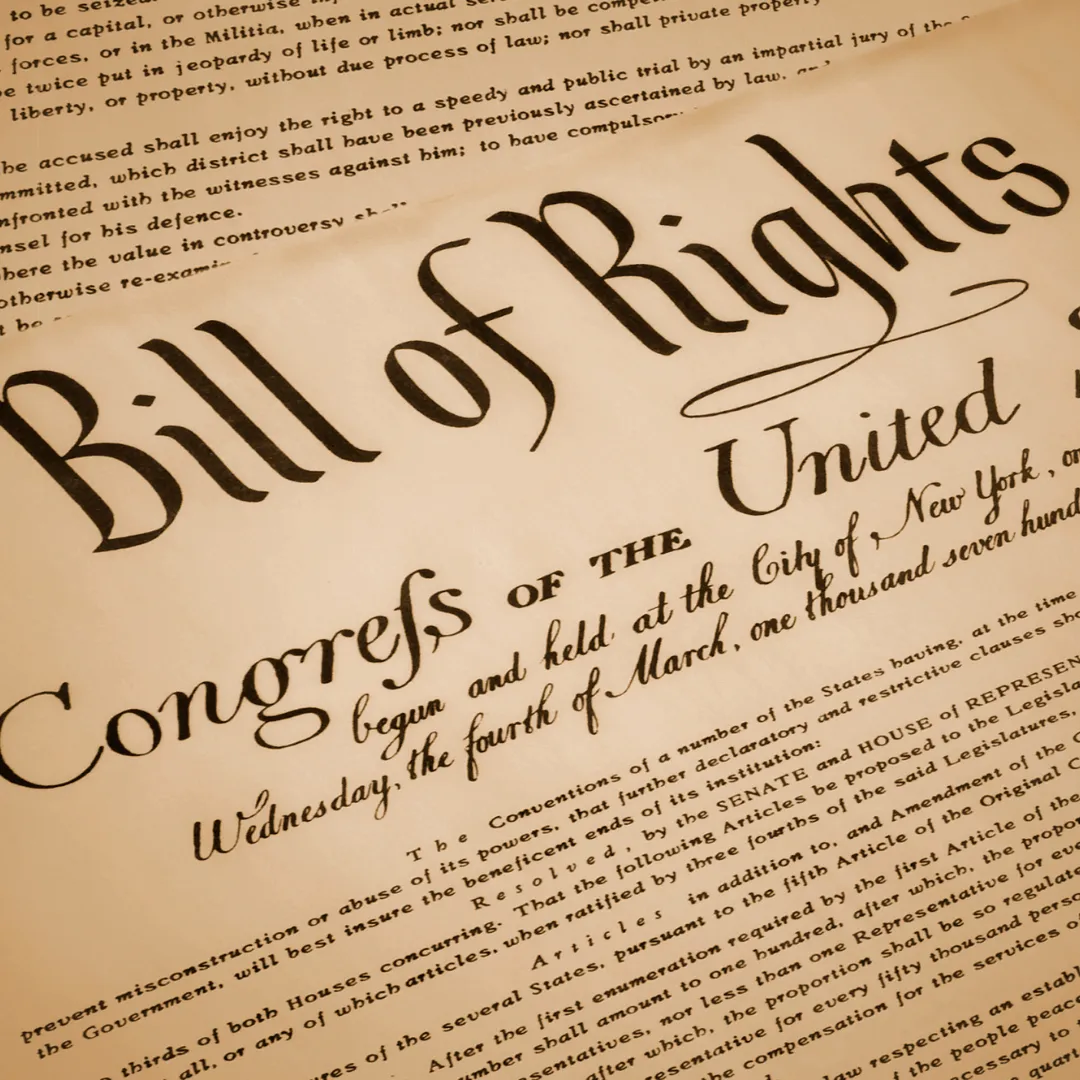 to be
for a capital, or otherwise
forces, or in the Militia, when in actual
be twice put in jeopardy of life or limb; nor shall be
liberty, or property, without due process of law; nor shall private property
he accused shall enjoy the right to a speedy and public trial by an impartial jury of the
mmitted, which district shall have been previously ascertained by law, and
nfronted with the witnesses against him; to have compulsory
nsel for his defence.
here the value in controversy
otherwise re-exami
t be
Bill of Rights
Congreſs OF THE United
begun and held at the City of New York, on
Wednesday, the fourth of March, one thousand seven hund
The Conventions of a number of the States having, at the time
prevent misconstruction or abuse of its powers, that further declaratory and restrictive clauses sho
the Government, will best insure the beneficent ends of its institution:
Resolved, by the SENATE and HOUSE of REPRESEN
thirds of both Houses concurring. That the following Articles be proposed to the Legisla
all, or any of which articles, when ratified by three fourths of the said Legislatures,
Articles in addition to, and Amendment of the C
res of the several States, pursuant to the fifth Article of the Original C
After the first enumeration required by the first Article of the
umber shall amount to one hundred, after which, the propor
sentatives, nor less than one Representative for eve
after which, the proportion shall be so regulate
esentative for every fifty thousand perso
the compensation for the services o
law respecting an establ
of the people peace
cessary to
quart